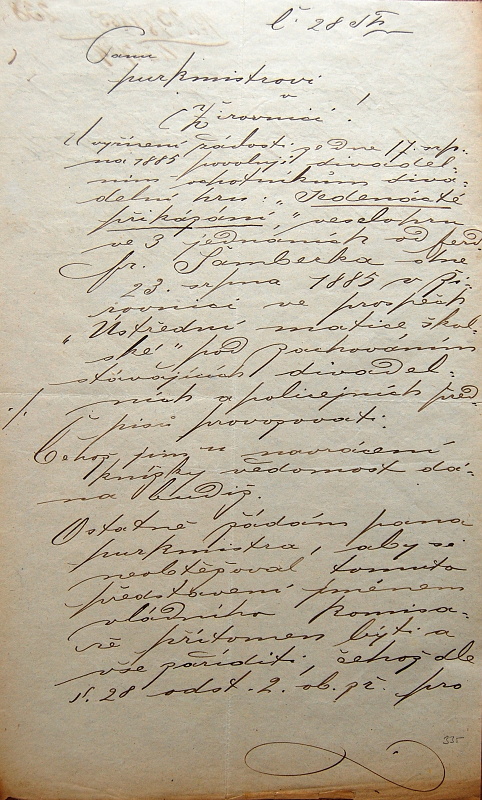 č. 28
Panu
purkmistrovi
v
Žirovnici!
U vyřízení žádosti je dne 17. srp-
na 1885 povoluji divadel-
ním ochotníkům diva-
delní hru: „Jedenácté
přikázání," veselohru
ve 3 jednáních od Ferd.
Fr. Šamberka dne
23. srpna 1885 v Ži-
rovnici ve prospěch
„Ústřední matice škol-
ské" pod zachováním
stávajících divadel-
ních a policejních před-
./.
pisů provozovati.
Čehož jim u navrácení
knížky vědomost dá-
na budiž.
Ostatně žádám pana
purkmistra, aby se
neobtěžoval tomuto
představení jménem
vládního komisa-
ře přítomen býti a
vše zaříditi, čehož dle
§. 28 odst. 2. ob. zř. pro
335